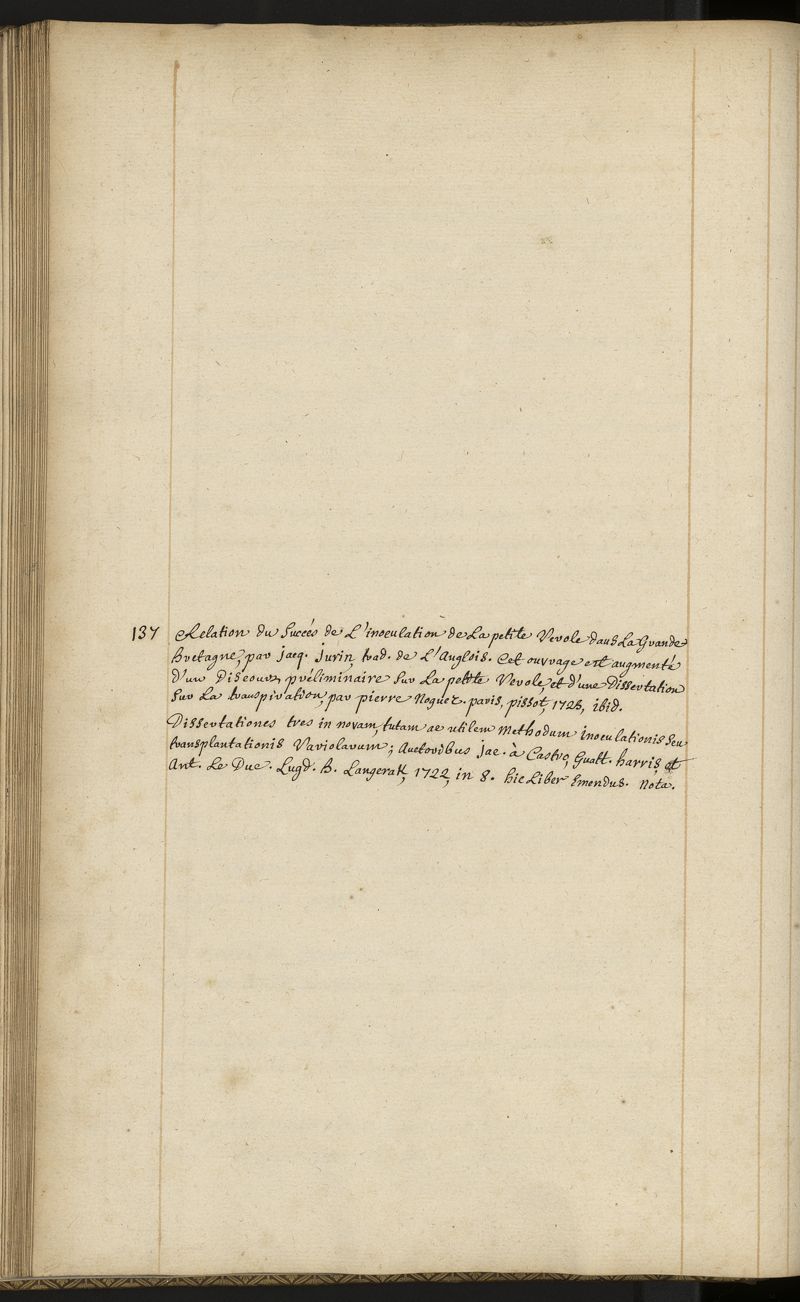 137 Relation du Succès de L'inoculation de La petite Verole dans La Grande
Bretagne, par Jacq. Jurin, trad. de L'Anglois. Cet ouvrage est augmenté
d'un Discours, préliminaire Sur La petite Verole, et d'une Dissertation
Sur La transpiration, par pierre Noguez. paris, pissot, 1725, ibid.
Dissertationes tres in novam, tutam ac utilem Methodum inoculationis Seu
transplantationis Variolarum; Auctoribus Jac. à Castro, Gualt. harris et
Ant. Le Duc. Lugd. B. Langerak, 1722, in 8. hic Liber Emendus. Nota.